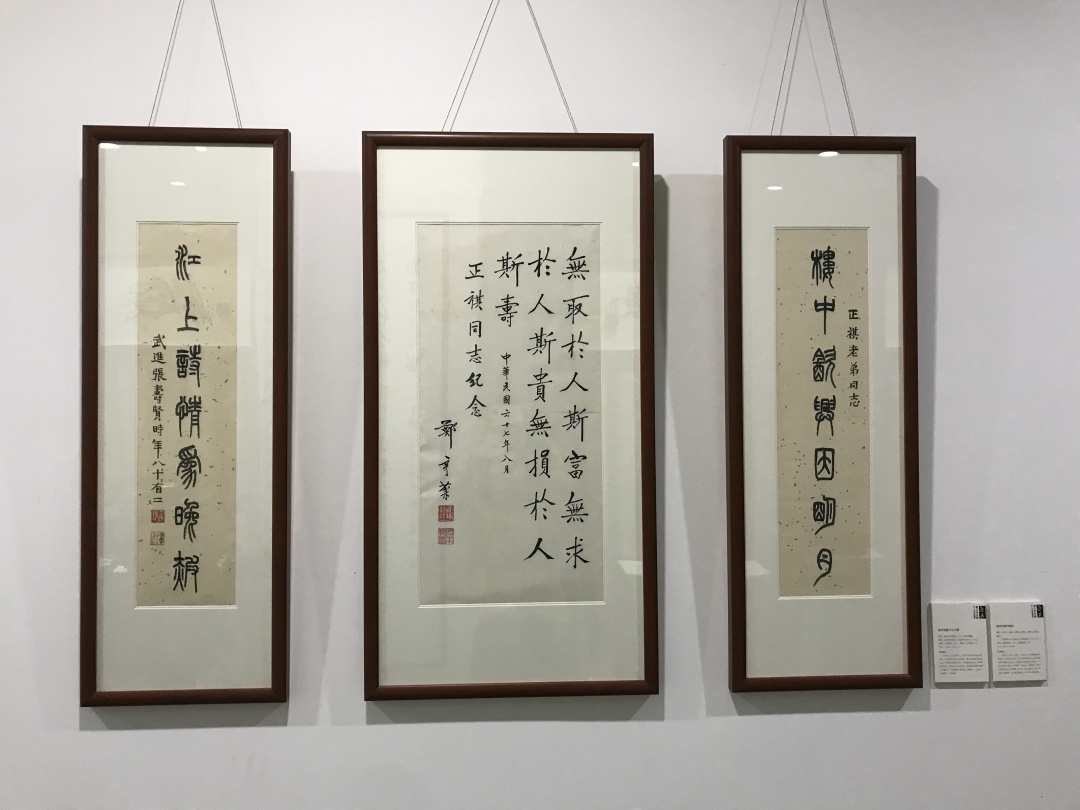 正祺老弟同志
樓中飲興因明月
無取於人斯富無求
於人斯貴無損於人
斯壽
中華民國六十七年八月
正祺同志紀念
鄭彥棻
江上詩情爲晚赮
武進張壽賢時年八十有二